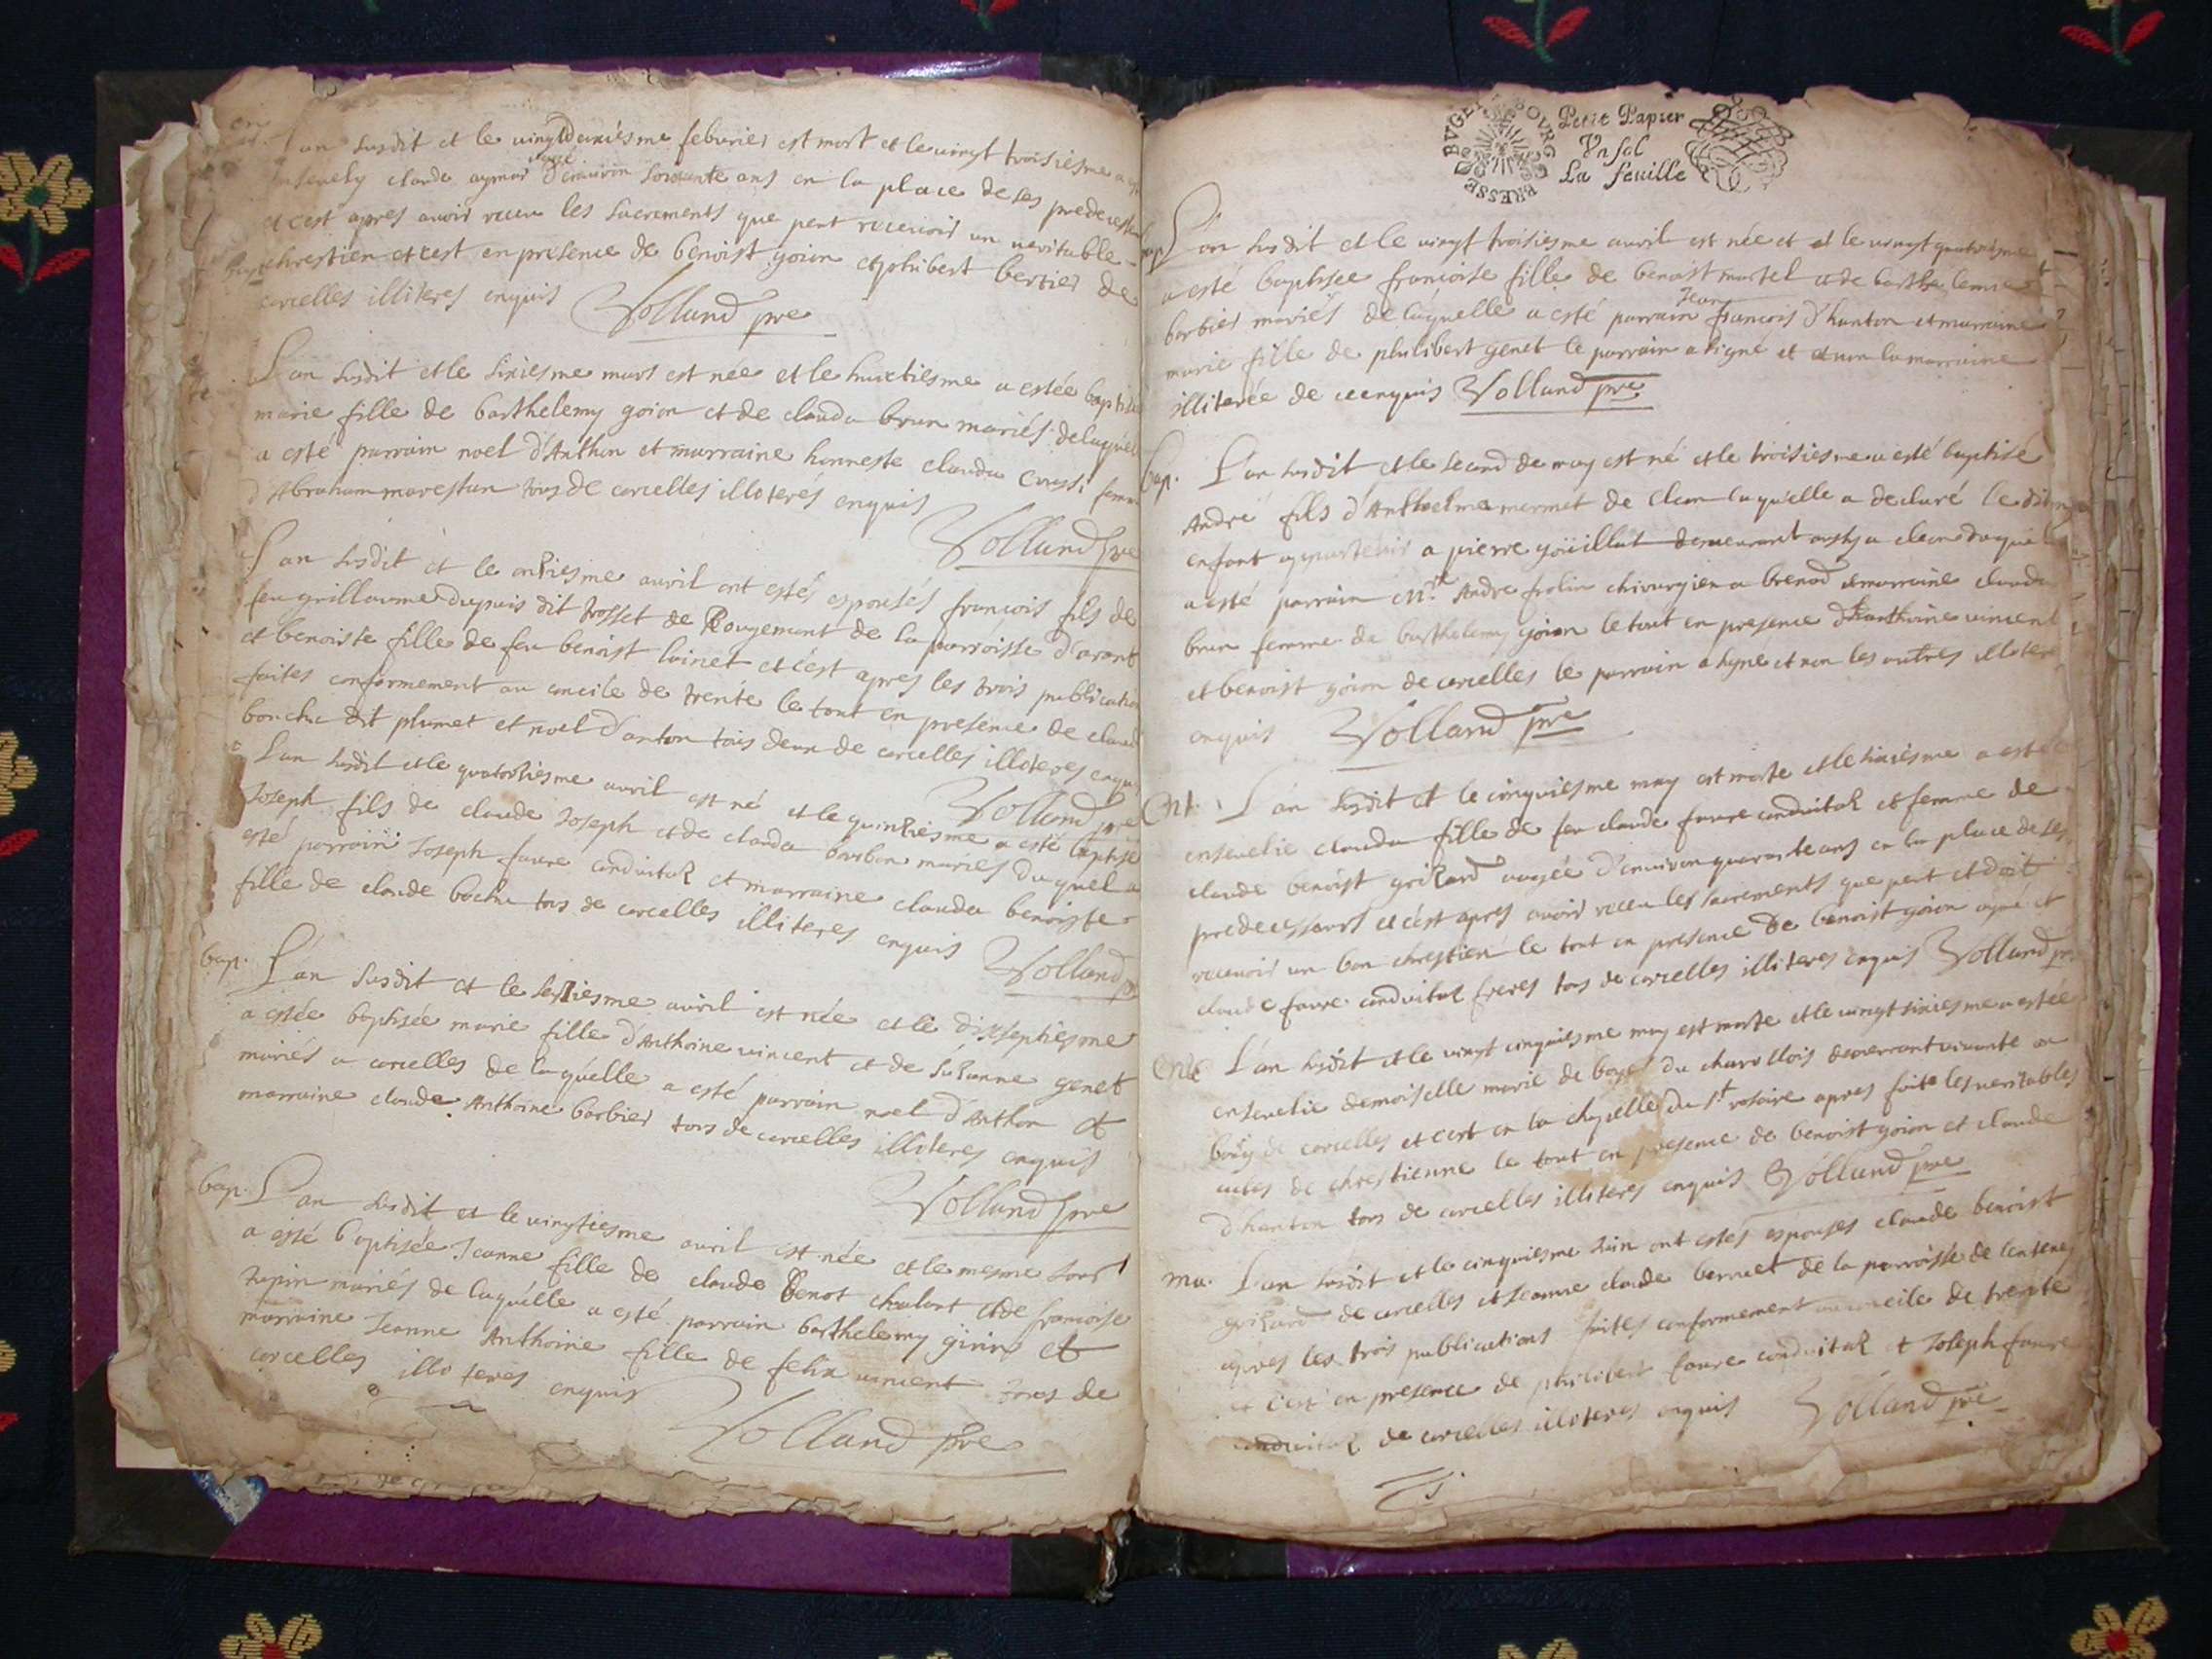 en
L'an susdit et le vingtdeuxiesme febvrier est mort et le vingt troisiesme a
ensevely claude aymar aagé d'environ soixante ans en la place de ses predecess
et c'est apres avoir receu les sacrements que peut recevoir un veritable
chrestien et c'est en presence de benoist goion et philibert bertier de
corcelles illiteres enquis Volland pre
L'an susdit et le sixiesme mars est née et le huictiesme a estée baptisée
marie fille de barthelemy goion et de clauda brun mariés de laquelle
a esté parrain noel d'Anthon et marraine honneste clauda femme
d'Abraham marestan tous de corcelles illiterés enquis
Volland pre
L'an susdit et le onziesme avril ont estés espousés francois fils de
feu guillaume dupuis dit trosset de Rougemont de la parroisse d'arant
et benoiste fille de feu benoist loinet et c'est apres les trois publications
faites conformement au concile de trente le tout en presence de claude
bouchu dit plumet et noel d'anton tous deux de corcelles illiteres enquis
Volland pre
L'an susdit et le quatorziesme avril est né et le quinziesme a esté baptisé
Joseph fils de claude Joseph et de clauda barbon mariés duquel a
esté parrain Joseph favre conduitaz et marraine clauda benoiste
fille de claude bochu tous de corcelles illiteres enquis Volland p
bap. L'an susdit et le seziesme avril est née et le dixseptiesme
a estée baptisée marie fille d'Anthoine vincent et de Suzanne genet
mariés a corcelles de laquelle a esté parrain noel d'Anthon et
marraine claude Anthoine barbier tous de corcelles illiteres enquis
Volland pre
bap. L'an susdit et le vingtiesme avril est née et le mesme jour
a esté baptisée Jeanne fille de claude benot chalant et de francoise
mariés de laquelle a esté parrain barthelemy girin et
marraine Jeanne Anthoine fille de felix vincent tous de
corcelles illiteres enquis
Volland pre
BVGEY BOVRG BRESSE
Petit Papier
Vn sol
La feuille
bap L'an susdit et le vingt troisiesme avril est née et et le vingt quatriesme
a esté baptisée francoise fille de benoist martel et de barthelemie
barbier mariés de laquelle a esté parrain Jean francois d'hanton et marraine
marie fille de philibert genet le parrain a signé et et non la marraine
illiterée de ce enquis Volland pre
bap. L'an susdit et le second de may est né et le troisiesme a esté baptisé
André fils d'Anthelme mermet de cleon laquelle a declaré ledit
enfant appartenir a pierre goüillat demeurant a cleon duquel
a esté parrain Mr André frolin chirurgien a brenod et marraine clauda
brun femme de barthelemy goion le tout en presence d'Anthoine vincent
et benoist goion de corcelles le parrain a signé et non les autres illiteres
enquis Volland pre
Ent. L'an susdit et le cinquiesme may est morte et le sixiesme a estée
ensevelie clauda fille de feu claude favre conduitaz et femme de
claude benoist grizard aagée d'environ quarante ans en la place de ses
predecesseurs et c'est apres avoir receu les sacrements que peut et doit
recevoir un bon chrestien le tout en presence de benoist goion et
claude favre conduitaz freres tous de corcelles illiteres enquis Volland pre
Ent L'an susdit et le vingt cinquiesme may est morte et le vingt sixiesme a estée
ensevelie demoiselle marie de du charollois demeurant vivante au
de corcelles et c'est en la chapelle du st rosaire apres faite les veritables
actes de chrestienne le tout en presence de benoist goion et claude
d'hanton tous de corcelles illiteres enquis Volland pre
Ma. L'an susdit et le cinquiesme Juin ont estés espousés claude benoist
grizard de corcelles et Jeanne claude bernuet de la parroisse de lantenay
apres les trois publications faites conformement au concile de trente
et c'est en presence de philibert favre conduitaz et Joseph favre
conduitaz de corcelles illiteres enquis Volland pre